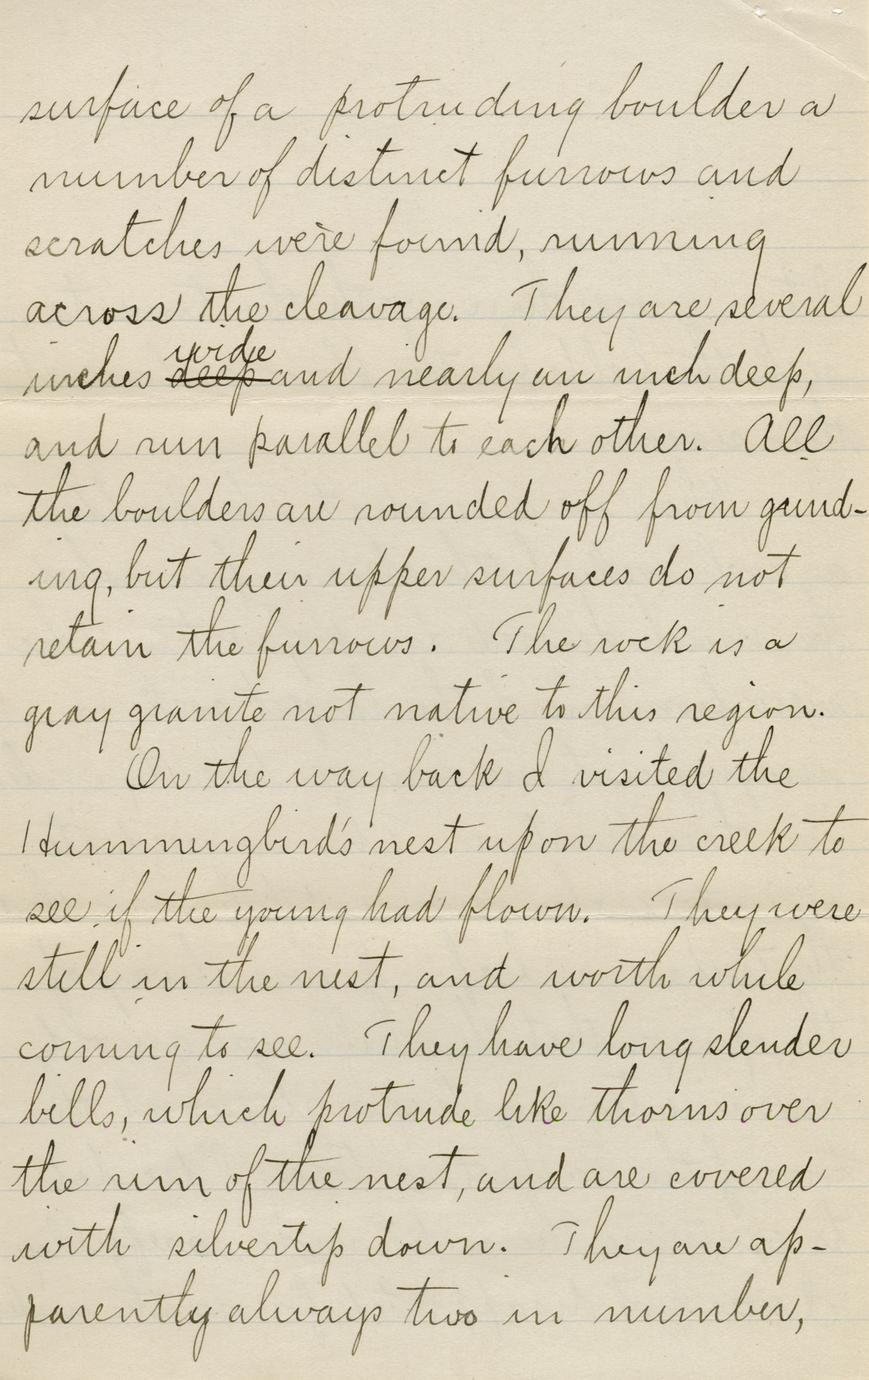 surface of a protruding boulder a
number of distinct furrows and
scratches were found, running
across the cleavage. They are several
inches ~~deep~~ wide and nearly an inch deep,
and run parallel to each other. All
the boulders are rounded off from grind-
ing, but their upper surfaces do not
retain the furrows. The rock is a
gray granite not native to this region.
On the way back I visited the
Hummingbird's nest upon the creek to
see if the young had flown. They were
still in the nest, and worth while
coming to see. They have long slender
bills, which protrude like thorns over
the rim of the nest, and are covered
with silvertip down. They are ap-
parently always two in number,